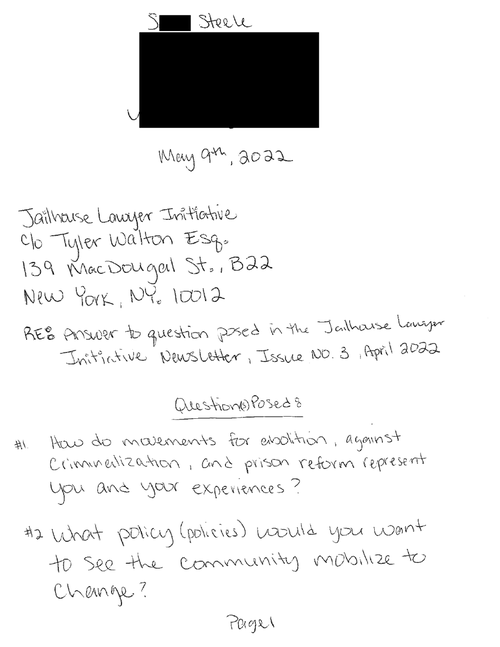 S Steele
May 9th, 2022
Jailhouse Lawyer Initiative
c/o Tyler Walton Esq.
139 MacDougal St., B22
New York, NY. 10012
RE: Answer to question posed in the Jailhouse Lawyer
Initiative Newsletter, Issue No. 3, April 2022
Question(s) Posed:
#1 How do movements for abolition, against
Criminalization, and prison reform represent
you and your experiences?
#2 What policy (policies) would you want
to see the community mobilize to
Change?
Page 1